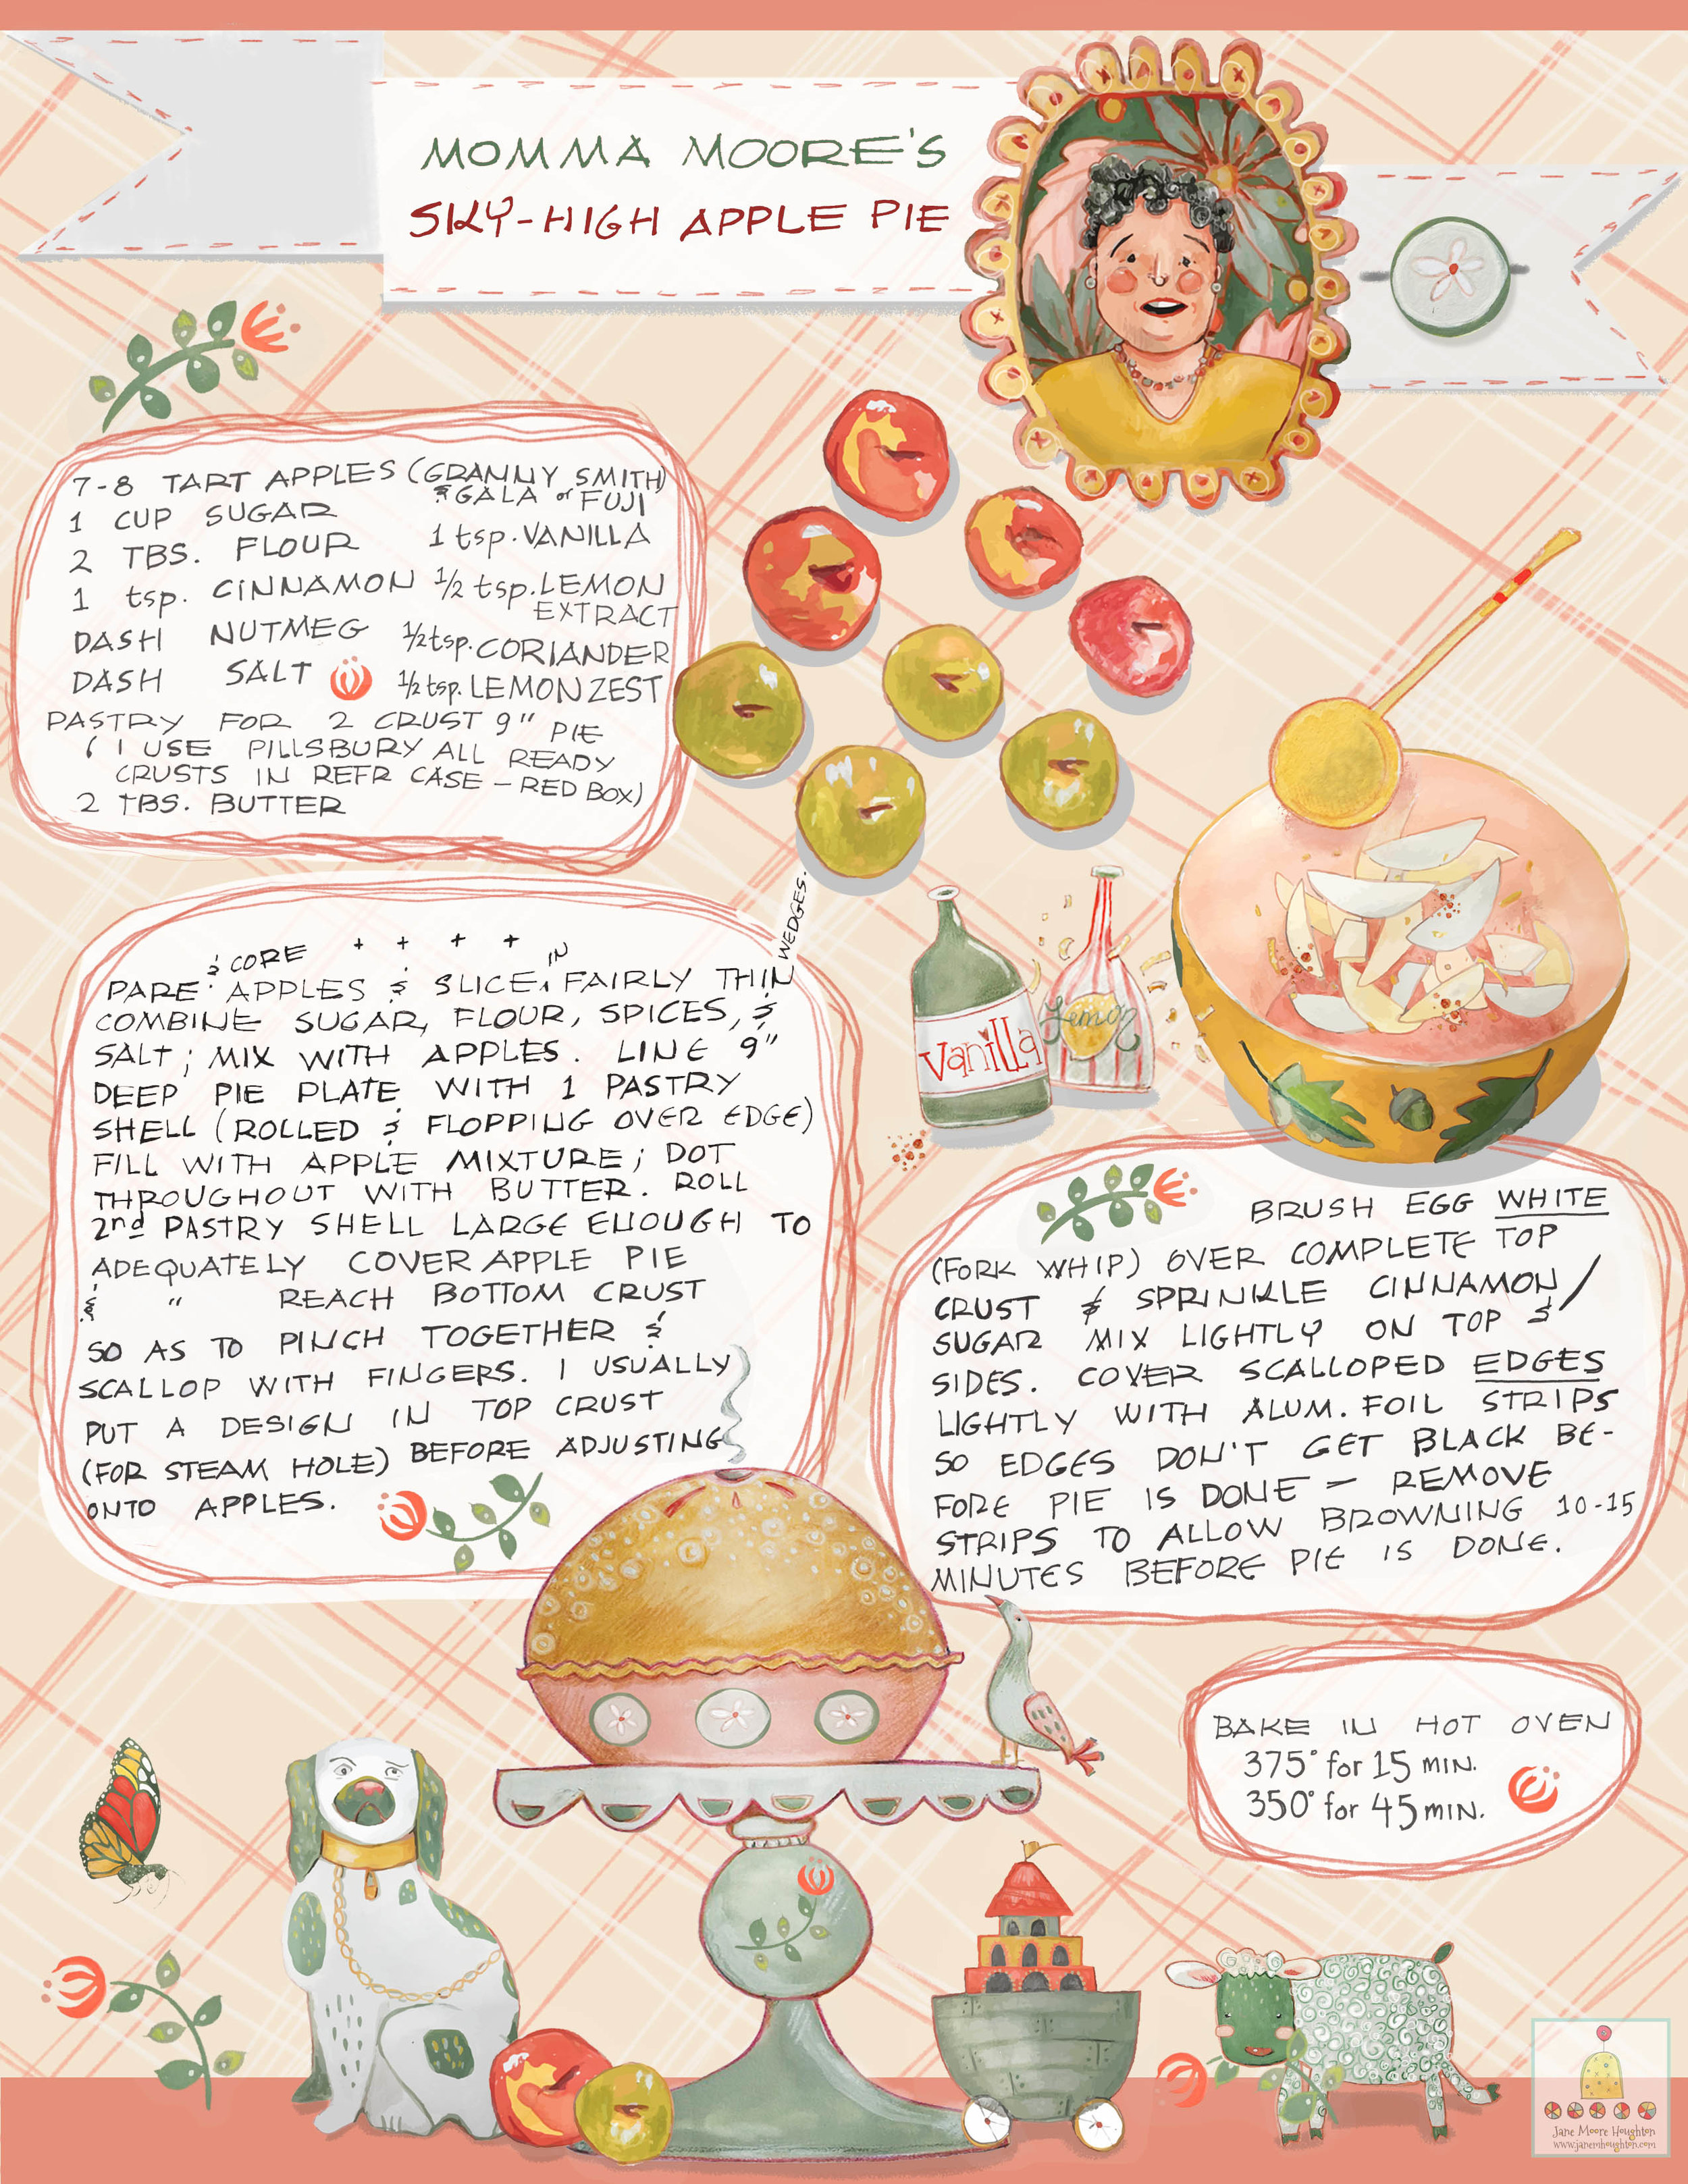 MOMMA MOORE'S
SKY-HIGH APPLE PIE
7-8 TART APPLES (GRANNY SMITH)
& GALA or FUJI
1 CUP SUGAR
2 TBS. FLOUR
1 tsp. CINNAMON
DASH NUTMEG
DASH SALT
1 tsp. VANILLA
1/2 tsp. LEMON
EXTRACT
1/2 tsp. CORIANDER
1/2 tsp. LEMON ZEST
PASTRY FOR 2 CRUST 9" PIE
(I USE PILLSBURY ALL READY
CRUSTS IN REFR CASE - RED BOX)
2 TBS. BUTTER
PARE & CORE APPLES & SLICE IN FAIRLY THIN WEDGES.
COMBINE SUGAR, FLOUR, SPICES, &
SALT; MIX WITH APPLES. LINE 9"
DEEP PIE PLATE WITH 1 PASTRY
SHELL (ROLLED & FLOPPING OVER EDGE)
FILL WITH APPLE MIXTURE; DOT
THROUGHOUT WITH BUTTER. ROLL
2nd PASTRY SHELL LARGE ENOUGH TO
ADEQUATELY COVER APPLE PIE
& " REACH BOTTOM CRUST
SO AS TO PINCH TOGETHER &
SCALLOP WITH FINGERS. I USUALLY
PUT A DESIGN IN TOP CRUST
(FOR STEAM HOLE) BEFORE ADJUSTING
ONTO APPLES.
Vanilla
Lemon
BRUSH EGG WHITE
(FORK WHIP) OVER COMPLETE TOP
CRUST & SPRINKLE CINNAMON/
SUGAR MIX LIGHTLY ON TOP &
SIDES. COVER SCALLOPED EDGES
LIGHTLY WITH ALUM. FOIL STRIPS
SO EDGES DON'T GET BLACK BE-
FORE PIE IS DONE - REMOVE
STRIPS TO ALLOW BROWNING 10-15
MINUTES BEFORE PIE IS DONE.
BAKE IN HOT OVEN
375° for 15 MIN.
350° for 45 MIN.
Jane Moore Houghton
www.janemhoughton.com